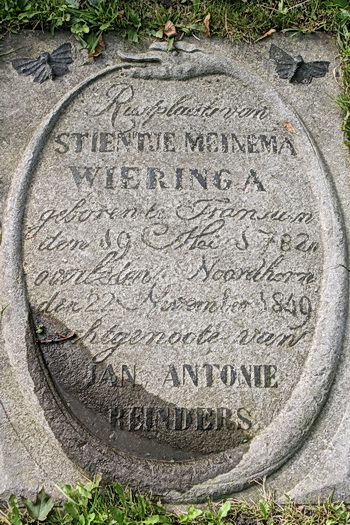 Rustplaats van
STIENTJE MEINEMA
WIERINGA
geboren te Fransum
den 19 Mei 1782
overleden Noordhorn
den 22 November 1849
Echtgenoote van
JAN ANTONIE
REINDERS.